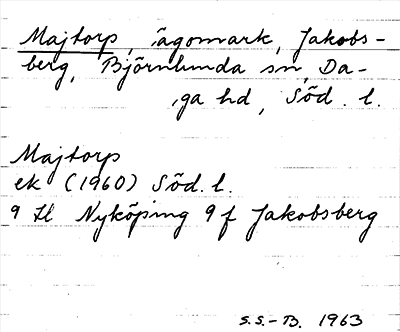 Majtorp, ägomark, Jakobs-
berg, Björnlunda sn, Da-
ga hd, Söd. l.
Majtorp
ek (1960) Söd. l.
9 H Nyköping 9 f Jakobsberg
S.S.-B. 1963